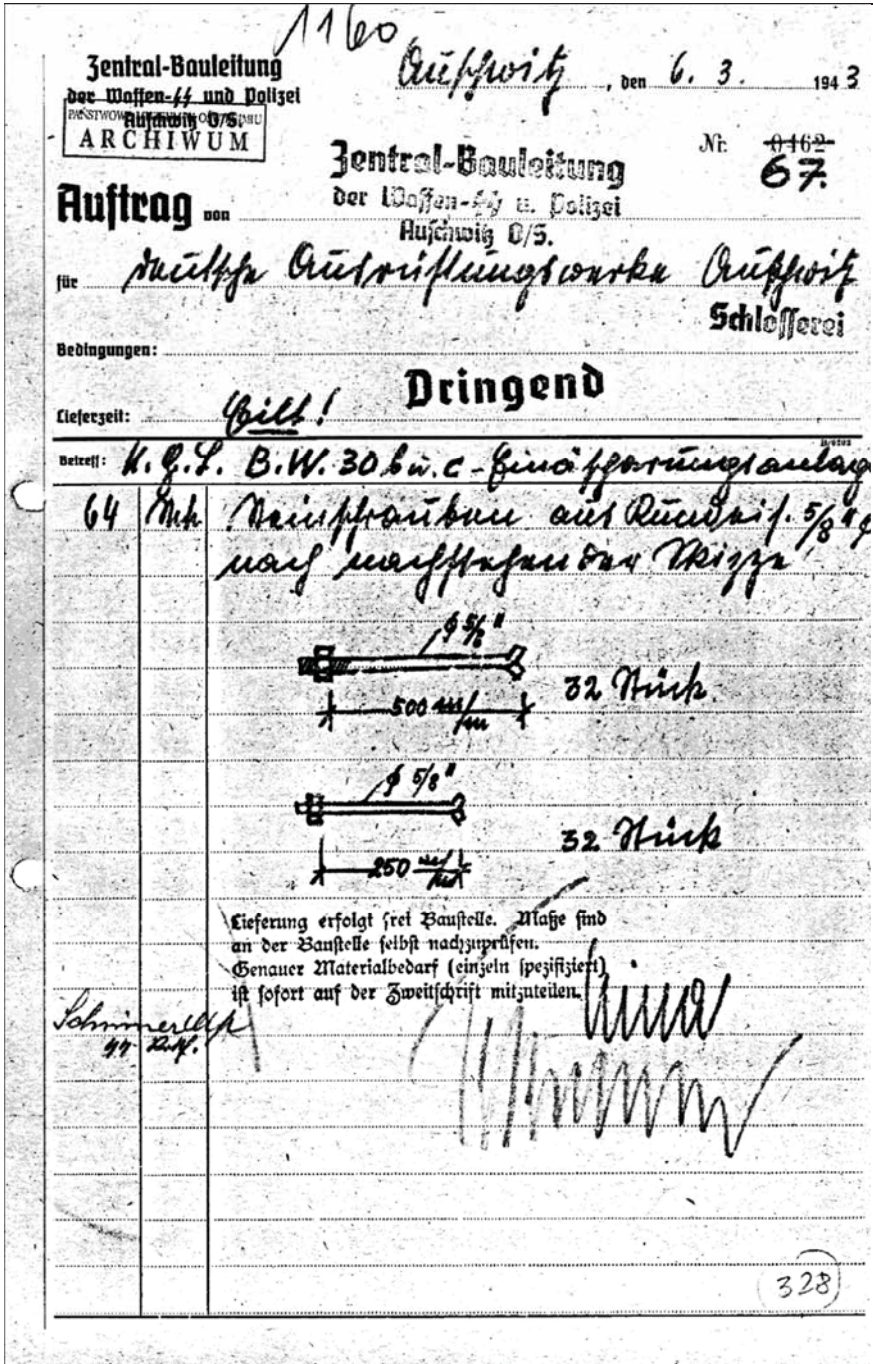 1160
Zentral-Bauleitung
der Waffen-SS und Polizei
Auschwitz O/S.
ARCHIWUM
Auschwitz, den 6. 3. 1943
Nr. 0462
67.
Zentral-Bauleitung
der Waffen-SS u. Polizei
Auschwitz O/S.
Auftrag von
für Deutsche Ausrüstungswerke Auschwitz
Schlosserei
Bedingungen:
Dringend
Lieferzeit: Eilt!
Betreff: K.G.L. B.W. 30 b u. c - Einäscherungsanlage
64 Stck Steinschrauben aus Rundeis. 5/8" ϕ
nach nachstehender Skizze
ϕ 5/8"
500 m/m
32 Stück
ϕ 5/8"
250 m/m
32 Stück
Lieferung erfolgt frei Baustelle. Maße sind
an der Baustelle selbst nachzuprüfen.
Genauer Materialbedarf (einzeln spezifiziert)
ist sofort auf der Zweitschrift mitzuteilen.
328